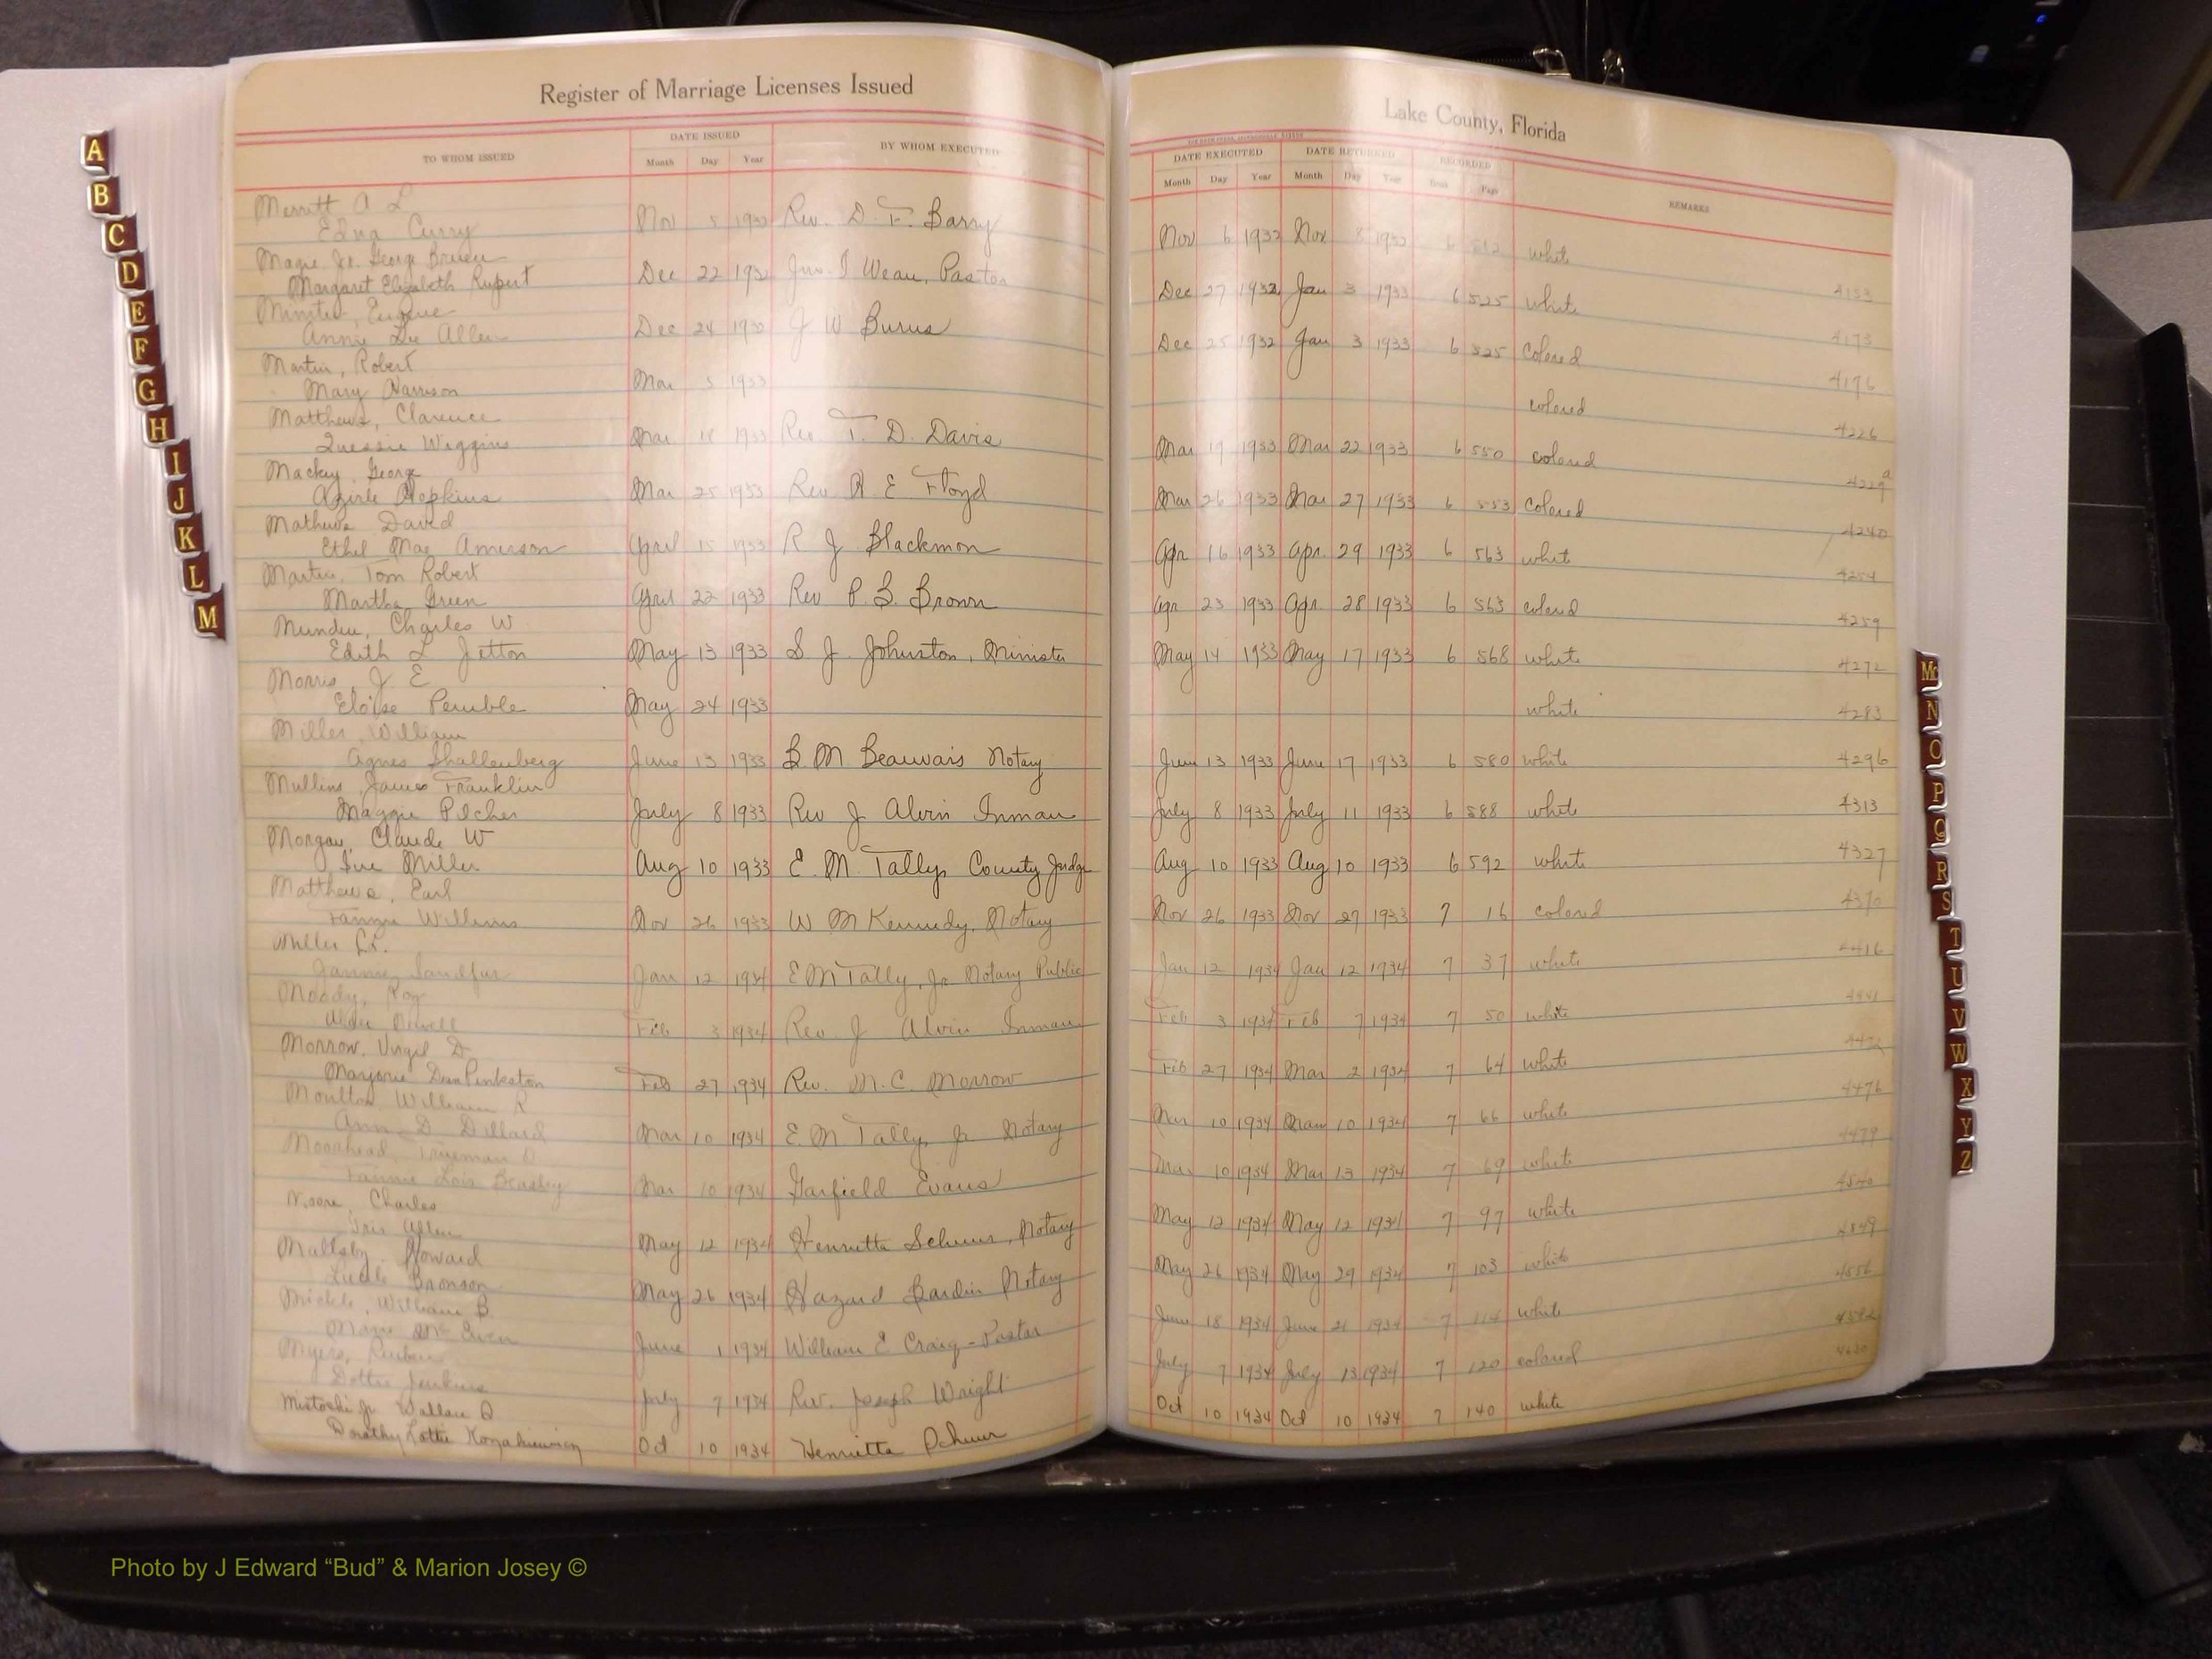 Register of Marriage Licenses Issued
TO WHOM ISSUED
DATE ISSUED
Month Day Year
BY WHOM EXECUTED
Lake County, Florida
DATE EXECUTED DATE RETURNED RECORDED
Month Day Year Month Day Year Book Page
REMARKS
Merritt A L
Edna Curry Nov 5 1932 Rev. D. F. Barry Nov 6 1932 Nov 8 1932 6 512 white
Magie, Jr. George
Margaret Elizabeth Rupert Dec 22 1932 Pastor Dec 27 1932 Jan 3 1933 6 525 white 4153
Eugene
Annie Lee Allen Dec 24 1932 J W Burns Dec 25 1932 Jan 3 1933 6 525 Colored 4173
Martin, Robert
Mary Harrison Mar 5 1933 colored 4196
Matthews, Clarence
Wiggins Mar 18 1933 Rev. T. D. Davis Mar 19 1933 Mar 22 1933 6 550 colored 4226
Mackey, George
Hopkins Mar 25 1933 Rev. R E Floyd Mar 26 1933 Mar 27 1933 6 553 Colored 4229
Mathews David
Ethel Mae Amerson April 15 1933 R J Blackmon Apr 16 1933 Apr. 29 1933 6 563 white 4240
Martin, Tom Robert
Martha Green April 22 1933 Rev P. S. Brown Apr 23 1933 Apr. 28 1933 6 563 colored 4254
Charles W
Edith L Jetton May 13 1933 S J Johnston, Minister May 14 1933 May 17 1933 6 568 white 4259
Morris, J. E
Eloise Pemble May 24 1933 white 4272
4283
Miller, William
Agnes Shallenberg June 13 1933 B. M Beauvais Notary June 13 1933 June 17 1933 6 580 white 4296
Mullins, James Franklin
Maggie Pilcher July 8 1933 Rev J Alvin Inman July 8 1933 July 11 1933 6 588 white 4313
Morgan, Claude W
Sue Miller Aug 10 1933 E. M. Tally, County Judge Aug 10 1933 Aug 10 1933 6 592 white 4327
Matthews, Earl
Fannie Williams Nov 26 1933 W M Kennedy, Notary Nov 26 1933 Nov 27 1933 7 16 colored 4370
Miller
Jan 12 1934 E M Tally, Jr Notary Public Jan 12 1934 Jan 12 1934 7 37 white 4416
Moody, Roy
Feb 3 1934 Rev. J Alvin Inman Feb 3 1934 Feb 7 1934 7 50 white 4441
Morrow, Virgil D
Marjorie Dean Pinkston Feb 27 1934 Rev. M. C. Morrow Feb 27 1934 Mar 2 1934 7 64 white 4472
Moulton, William R
Ann D Dillard Mar 10 1934 E. M Tally, Jr Notary Mar 10 1934 Mar 10 1934 7 66 white 4476
Moorhead, Trueman O
Fannie Lois Beasley Mar 10 1934 Garfield Evans Mar 10 1934 Mar 13 1934 7 69 white 4479
Moore, Charles
Iris Allen May 12 1934 Henrietta Schuur, Notary May 12 1934 May 12 1934 7 97 white
Maltsby, Howard
Lucile Bronson May 26 1934 Hazard Bardin Notary May 26 1934 May 29 1934 7 103 white 4549
Mickle, William B.
Marie McEwen June 1 1934 William E Craig - Pastor June 18 1934 June 21 1934 7 114 white 4556
Myers, Reuben
Dottie Jenkins July 7 1934 Rev. Joseph Wright July 7 1934 July 13 1934 7 120 colored 4592
Jr Wallace
Dorothy Lottie Oct 10 1934 Henrietta Schuur Oct 10 1934 Oct 10 1934 7 140 white 4630
A
B
C
D
E
F
G
H
I
J
K
L
M
Mc
N
O
P
Q
R
S
T
U
V
W
X
Y
Z
Photo by J Edward “Bud” & Marion Josey ©